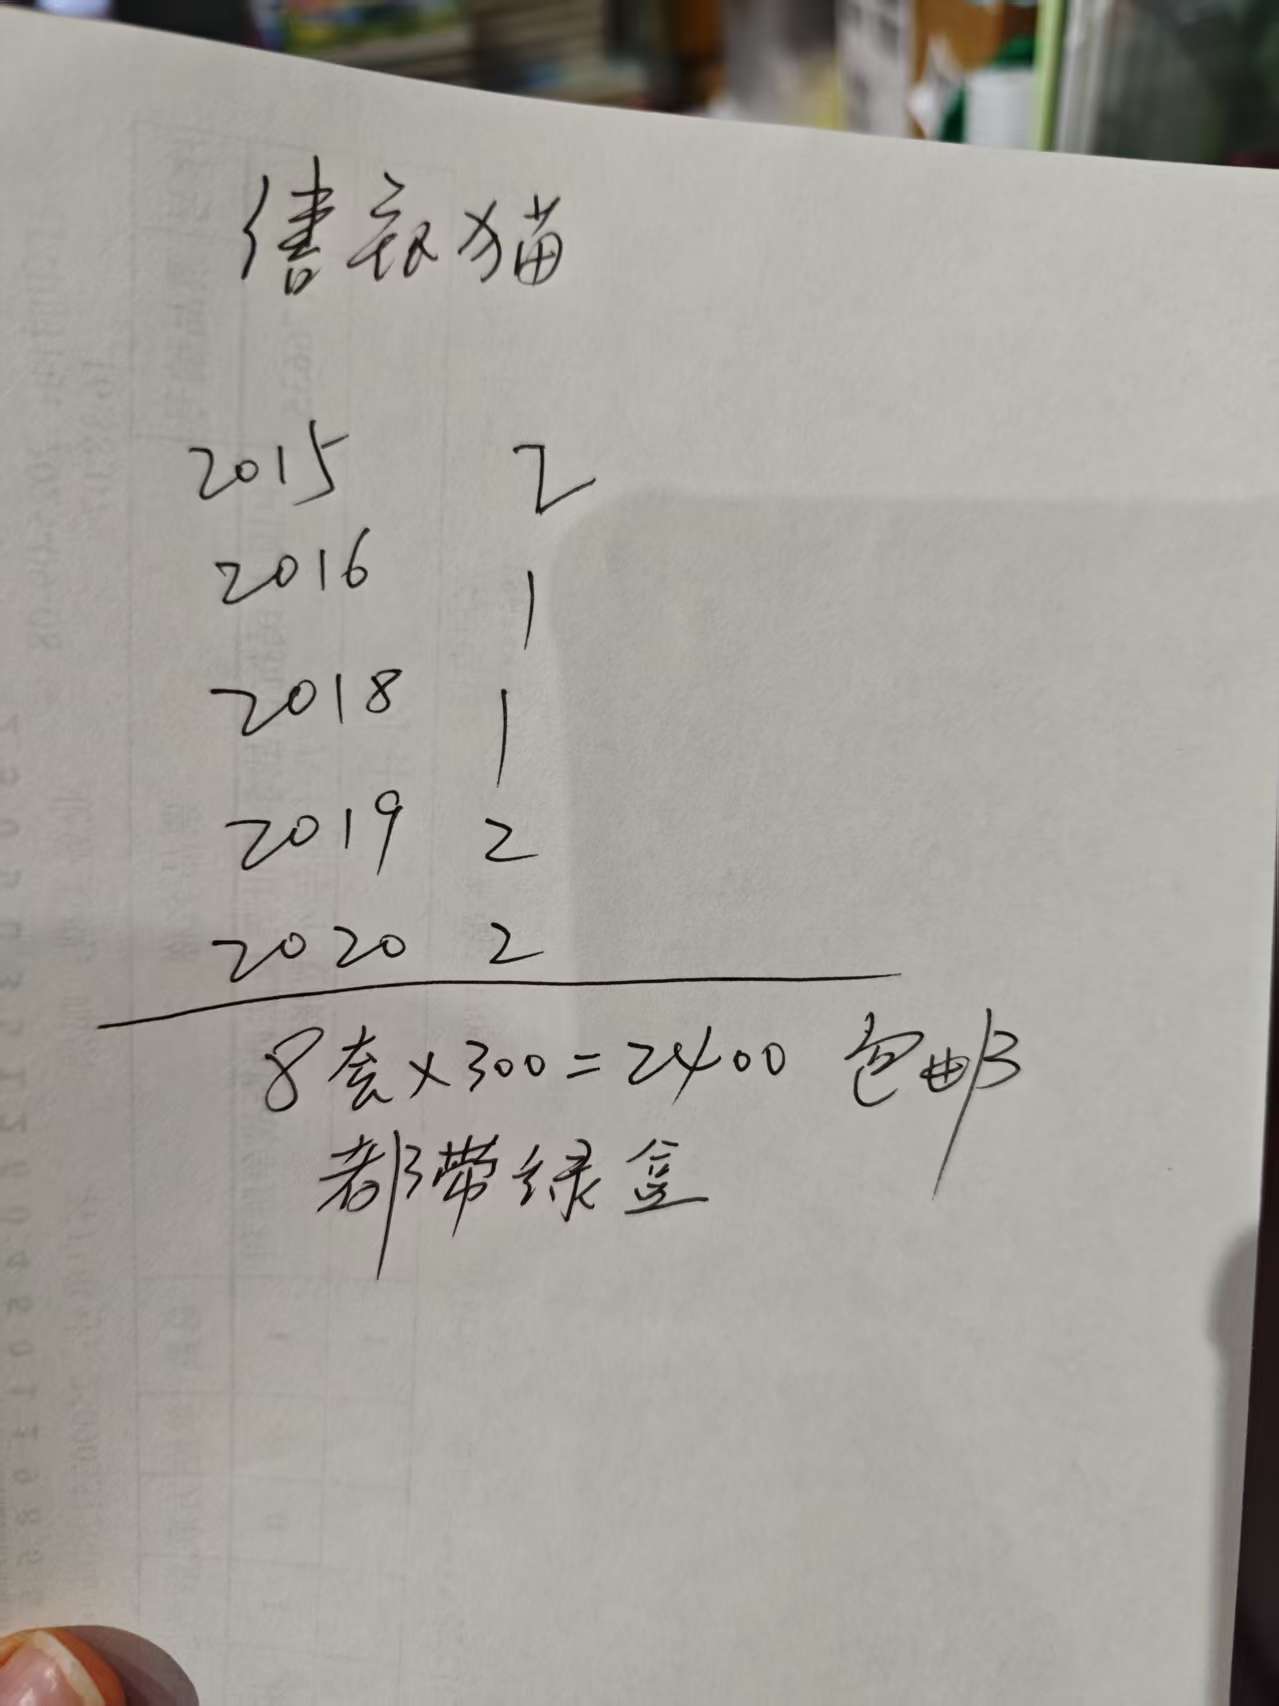 售熊猫
2015 2
2016 1
2018 1
2019 2
2020 2
8套×300=2400 包邮
都带绿盒